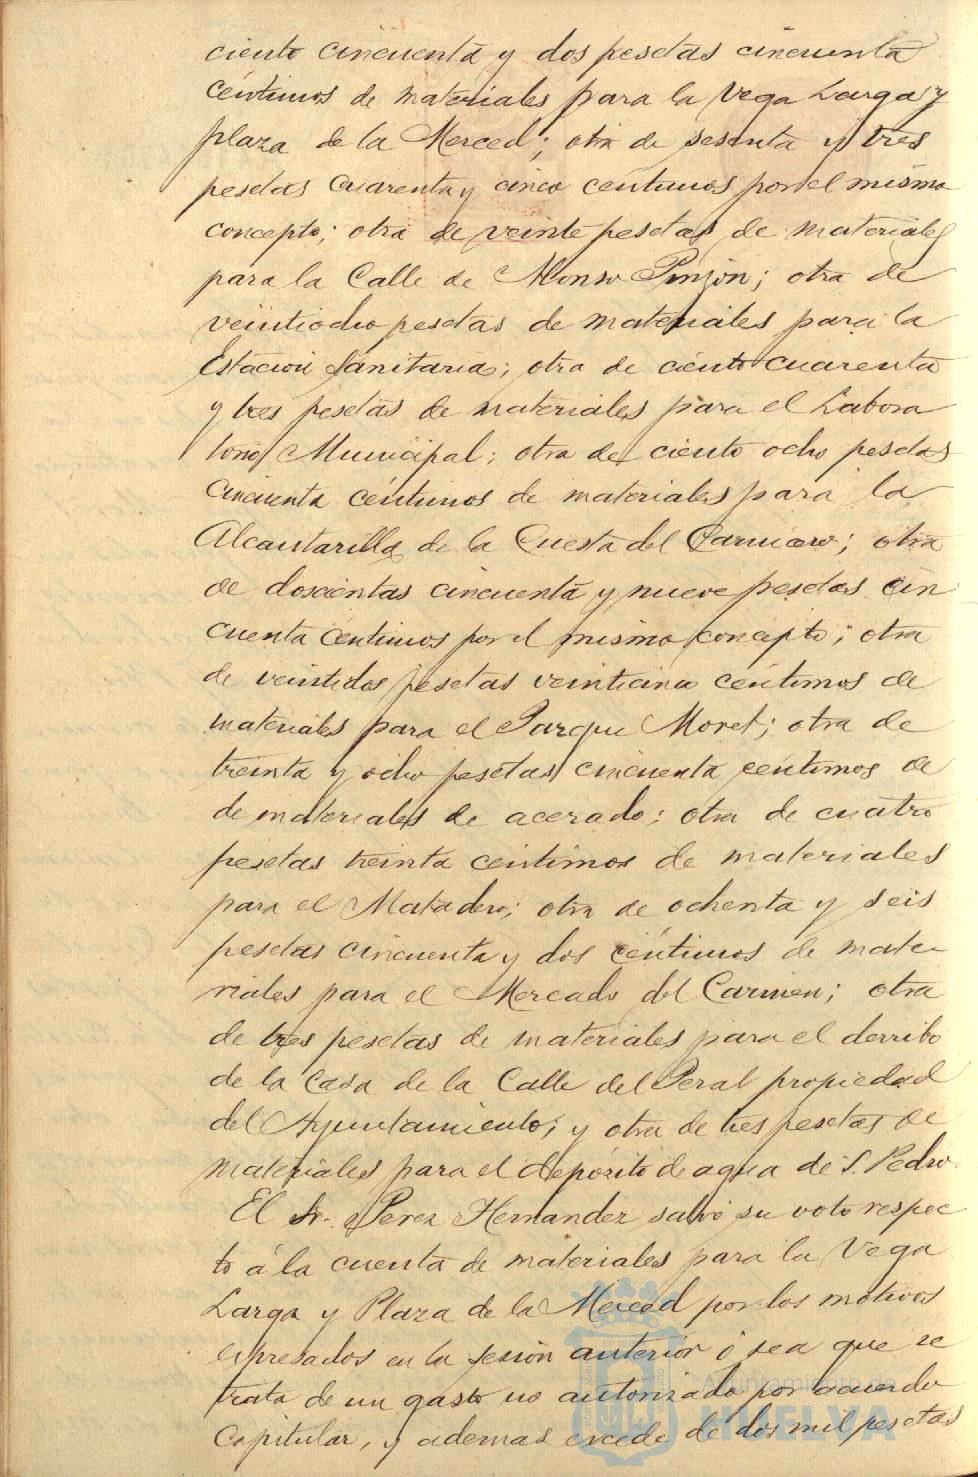 ciento cincuenta y dos pesetas cincuenta
céntimos de materiales para la Vega Larga y
plaza de la Merced; otra de sesenta y tres
pesetas cuarenta y cinco céntimos por el mismo
concepto; otra de veinte pesetas de materiales
para la Calle de Alonso Pinzón; otra de
veintiocho pesetas de materiales para la
Estación Sanitaria; otra de ciento cuarenta
y tres pesetas de materiales para el Labora
torio Municipal; otra de ciento ocho pesetas
cincuenta céntimos de materiales para la
Alcantarilla de la Cuesta del Carnicero; otra
de doscientas cincuenta y nueve pesetas cin
cuenta céntimos por el mismo concepto; otra
de veintidos pesetas veinticinco céntimos de
materiales para el Parque Moret; otra de
treinta y ocho pesetas cincuenta céntimos de
de materiales de acerado; otra de cuatro
pesetas treinta céntimos de materiales
para el Matadero; otra de ochenta y seis
pesetas cincuenta y dos céntimos de mate-
riales para el Mercado del Carmen; otra
de tres pesetas de materiales para el derribo
de la Casa de la Calle del Peral propiedad
del Ayuntamiento; y otra de tres pesetas de
materiales para el depósito de agua de S. Pedro.
El Sr. Perez Hernandez salvó su voto respec
to á la cuenta de materiales para la Vega
Larga y Plaza de la Merced por los motivos
espresados en la sesión anterior ó sea que se
trata de un gasto no autorizado por acuerdo
Capitular, y ademas excede de dos mil pesetas
Ayuntamiento de
HUELVA